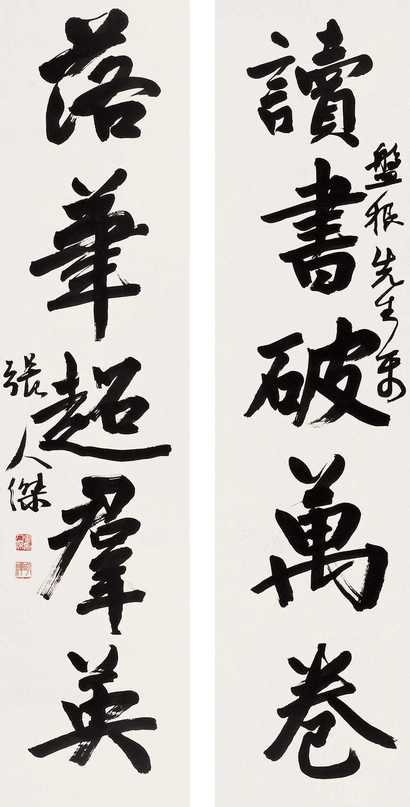 讀書破萬卷
盤根先生屬
落筆超羣英
張人傑